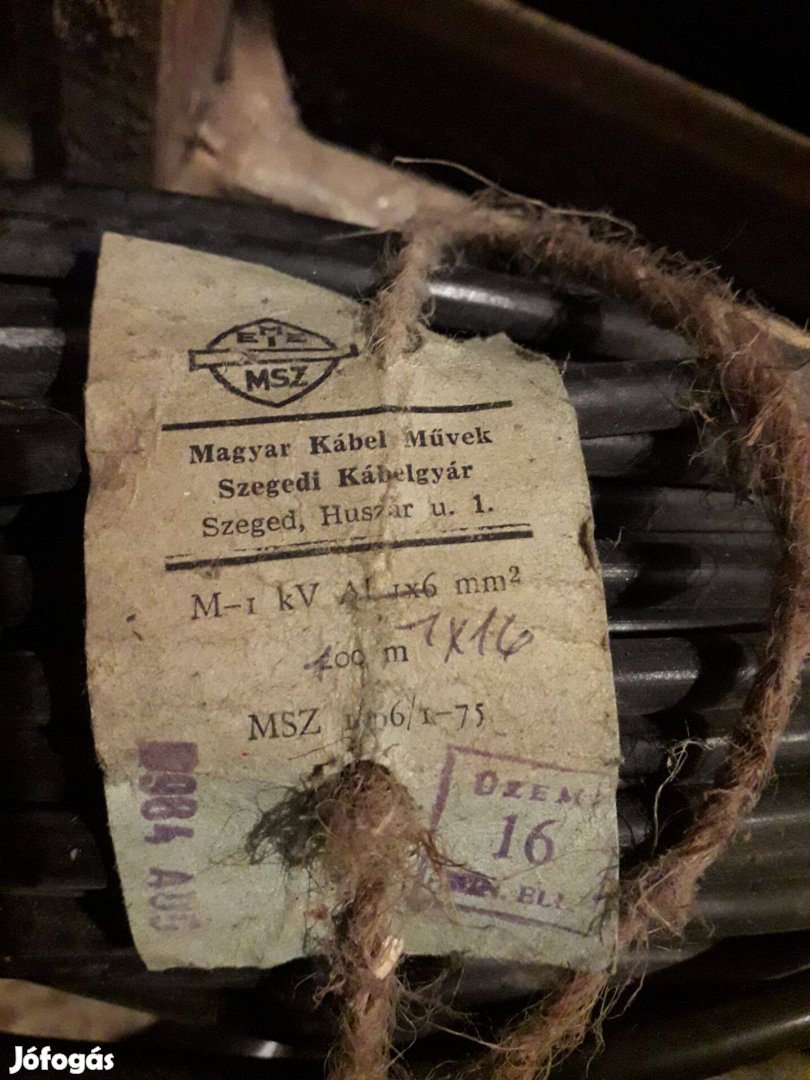 EMTE
MSZ
Magyar Kábel Művek
Szegedi Kábelgyár
Szeged, Huszár u. 1.
M-1 kV AL 1x6 mm²
1x16
m
MSZ /1-75
1984 AUG
ÜZEM
16
MIN. ELL.
Jófogás